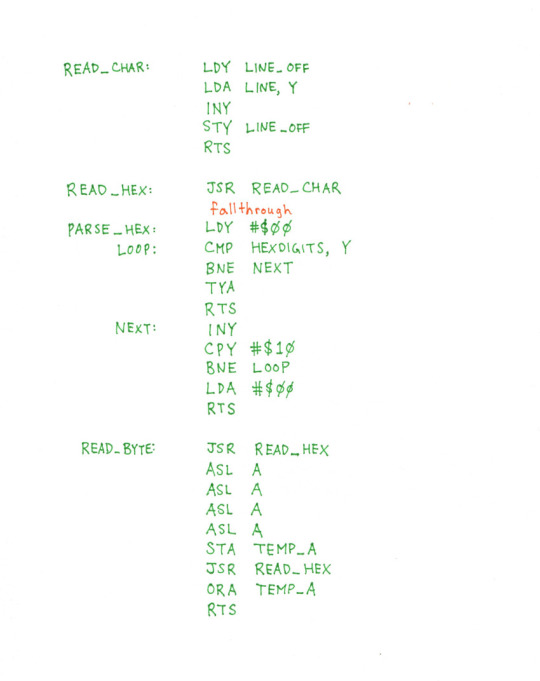 READ_CHAR: LDY LINE_OFF
LDA LINE, Y
INY
STY LINE_OFF
RTS
READ_HEX: JSR READ_CHAR
fallthrough
PARSE_HEX: LDY #$00
LOOP: CMP HEXDIGITS, Y
BNE NEXT
TYA
RTS
NEXT: INY
CPY #$10
BNE LOOP
LDA #$00
RTS
READ_BYTE: JSR READ_HEX
ASL A
ASL A
ASL A
ASL A
STA TEMP_A
JSR READ_HEX
ORA TEMP_A
RTS